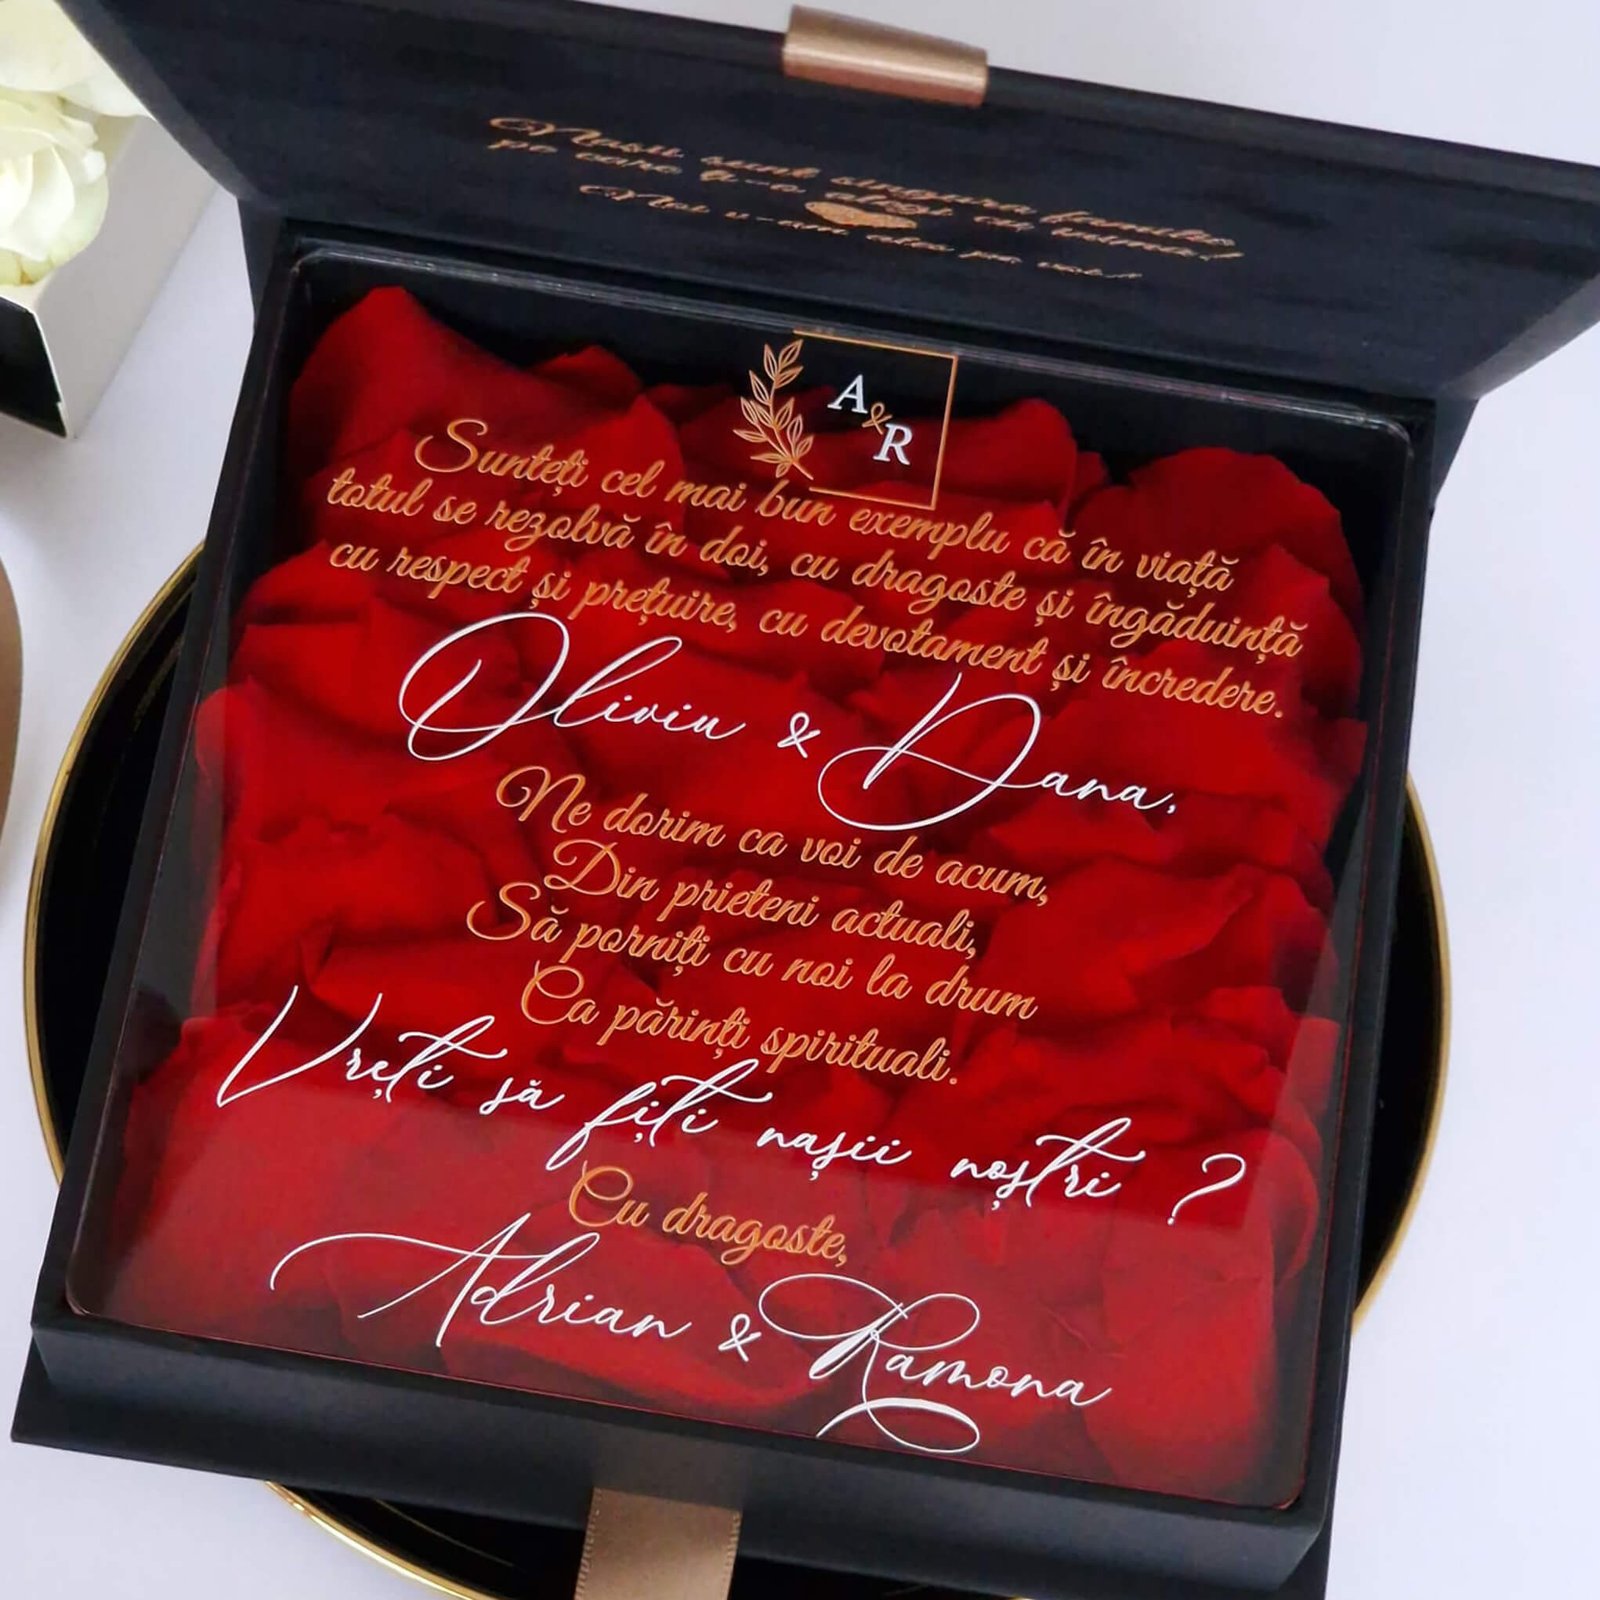 Nașii sunt singura familie
pe care ți-o alegi cu inima!
Noi v-am ales pe voi!
A
&
R
Sunteți cel mai bun exemplu că în viață
totul se rezolvă în doi, cu dragoste și îngăduință
cu respect și prețuire, cu devotament și încredere.
Oliviu & Dana,
Ne dorim ca voi de acum,
Din prieteni actuali,
Să porniți cu noi la drum
Ca părinți spirituali.
Vreți să fiți nașii noștri ?
Cu dragoste,
Adrian & Ramona